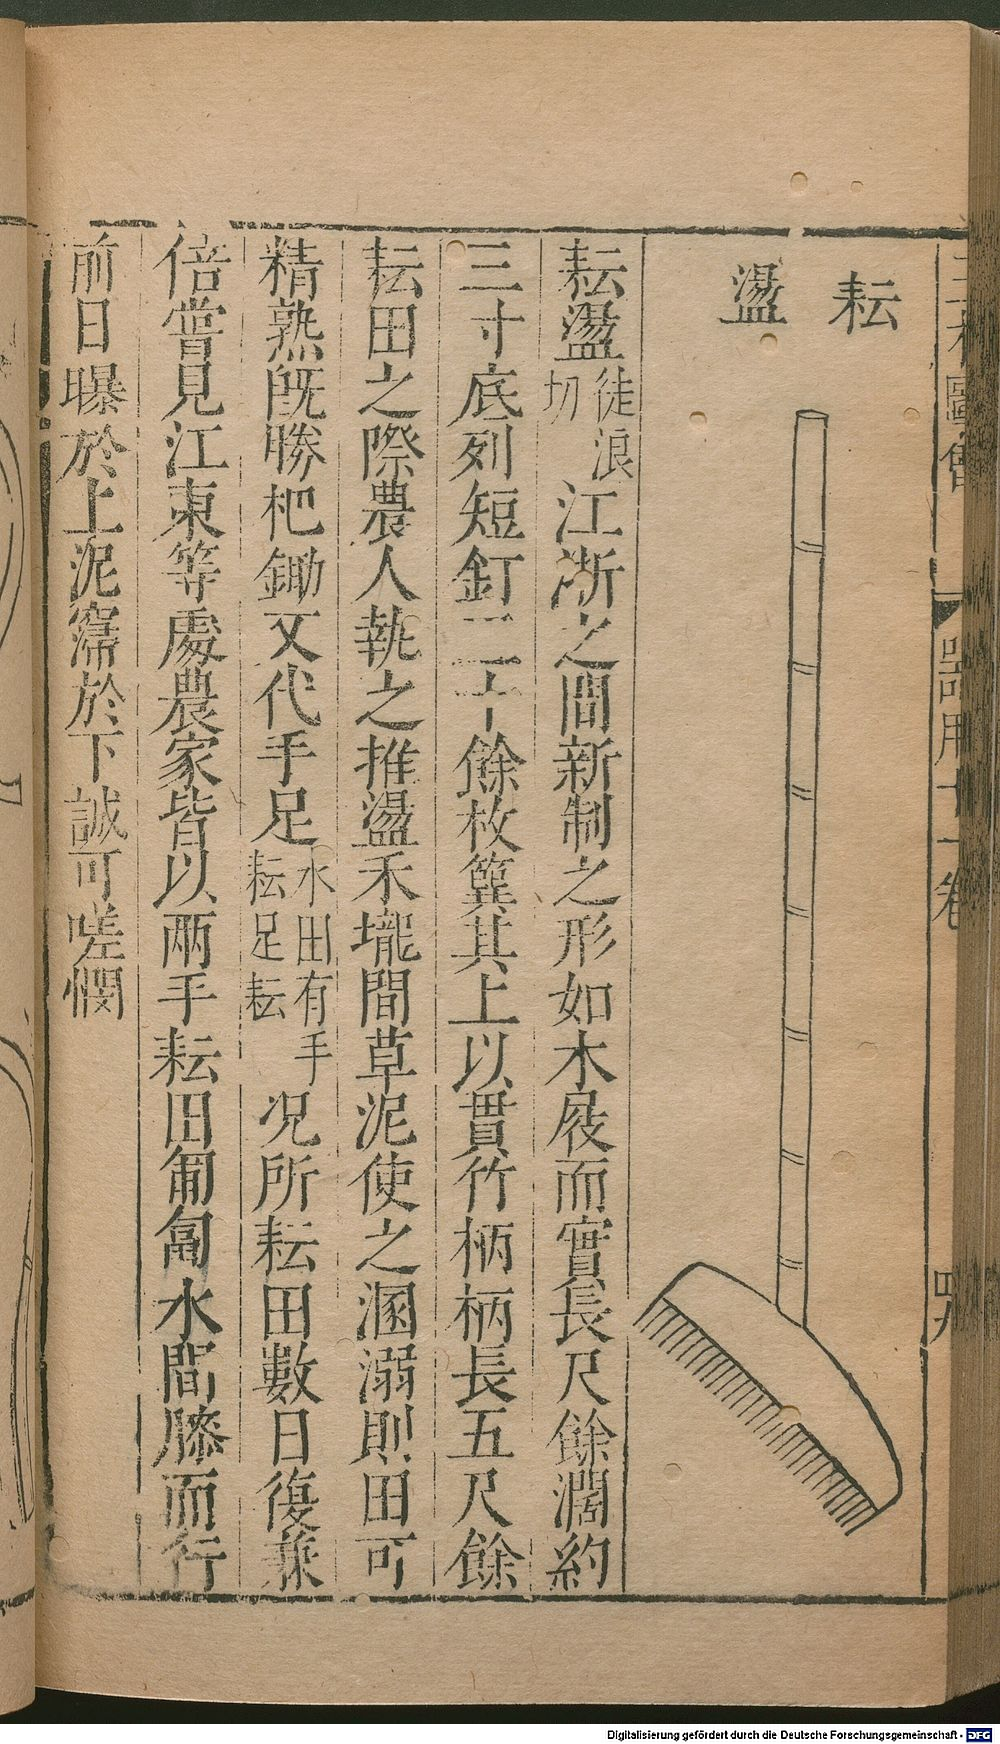 耘
盪
耘盪徒浪切江浙之間新制之形如木屐而實長尺餘濶約
三寸底列短釘二十餘枚簨其上以貫竹柄柄長五尺餘
耘田之際農人執之推盪禾壠間草泥使之溷溺則田可
精熟既勝杷鋤又代手足水田有手耘足耘况所耘田數日復兼
倍嘗見江東等處農家皆以兩手耘田匍匐水間膝而行
前日曝於上泥霈於下誠可嗟憫
器用十一卷
Digitalisierung gefördert durch die Deutsche Forschungsgemeinschaft - DFG